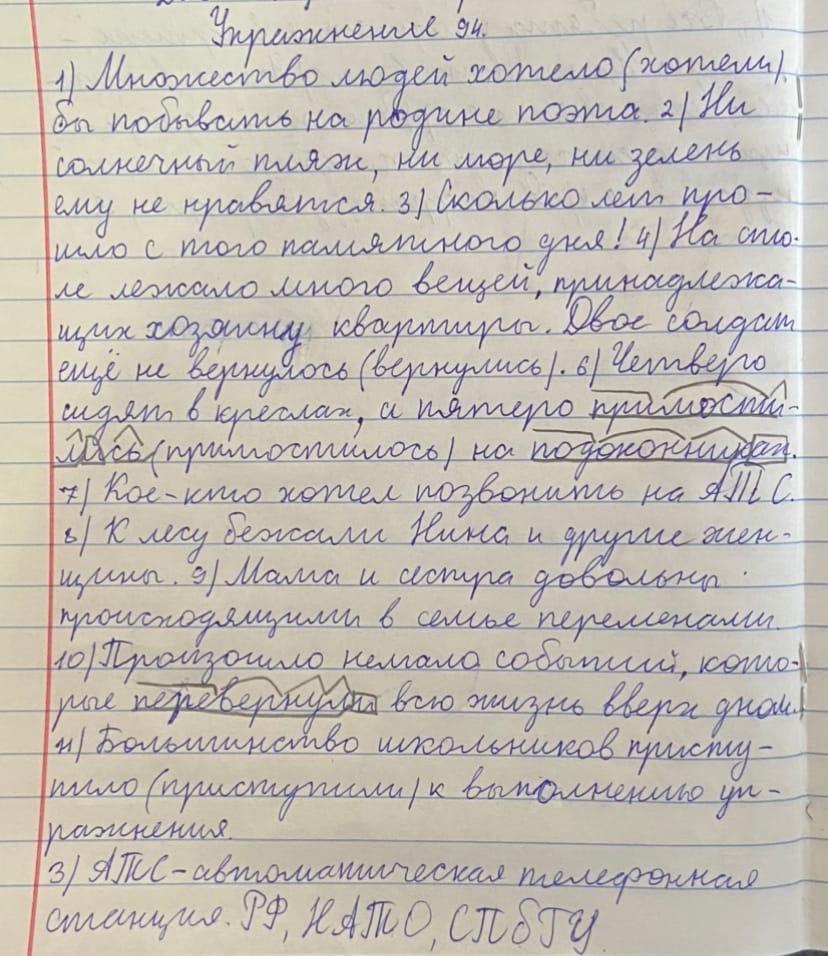 Упражнение 94.
1) Множество людей хотело (хотели)
бы побывать на родине поэта. 2) Ни
солнечный пляж, ни море, ни зелень
ему не нравятся. 3) Сколько лет про-
шло с того памятного дня! 4) На сто-
ле лежало много вещей, принадлежа-
щих хозяину квартиры. Двое солдат
ещё не вернулось (вернулись). 6) Четверо
сидят в креслах, а пятеро примости-
лись (примостилось) на подоконниках.
7) Кое-кто хотел позвонить на АТС.
8) К лесу бежали Нина и другие жен-
щины. 9) Мама и сестра довольны
происходящими в семье переменами.
10) Произошло немало событий, кото-
рые перевернули всю жизнь вверх дном.
11) Большинство школьников присту-
пило (приступили) к выполнению уп-
ражнения.
3) АТС - автоматическая телефонная
станция. РФ, НАТО, СПбГУ